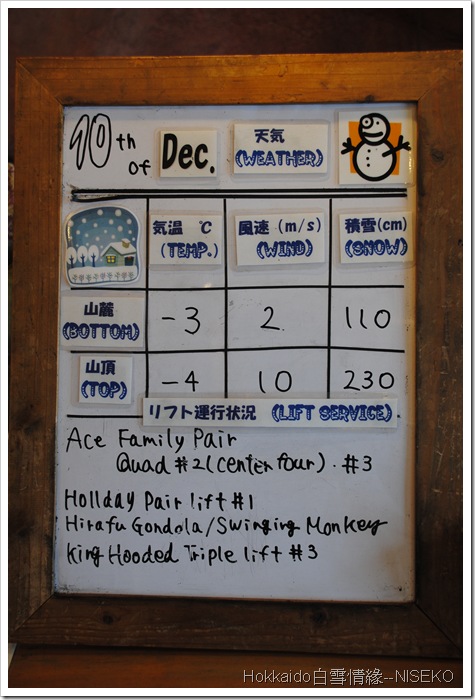 10th of Dec. 天気
(WEATHER)
気温 ℃ 風速(m/s) 積雪(cm)
(TEMP.) (WIND) (SNOW)
山麓
(BOTTOM) -3 2 110
山頂
(TOP) -4 10 230
リフト運行状況 (LIFT SERVICE)
Ace Family Pair
Quad #2(Center four). #3
Hollday Pair lift #1
Hirafu Gondola/Swinging Monkey
King Hooded Triple lift #3
Hokkaido白雪情緣--NISEKO